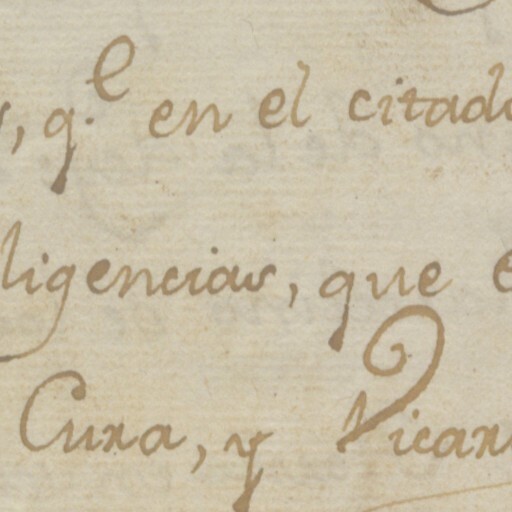 , q.e en el citado
ligencias, que
Cura, y Vicar